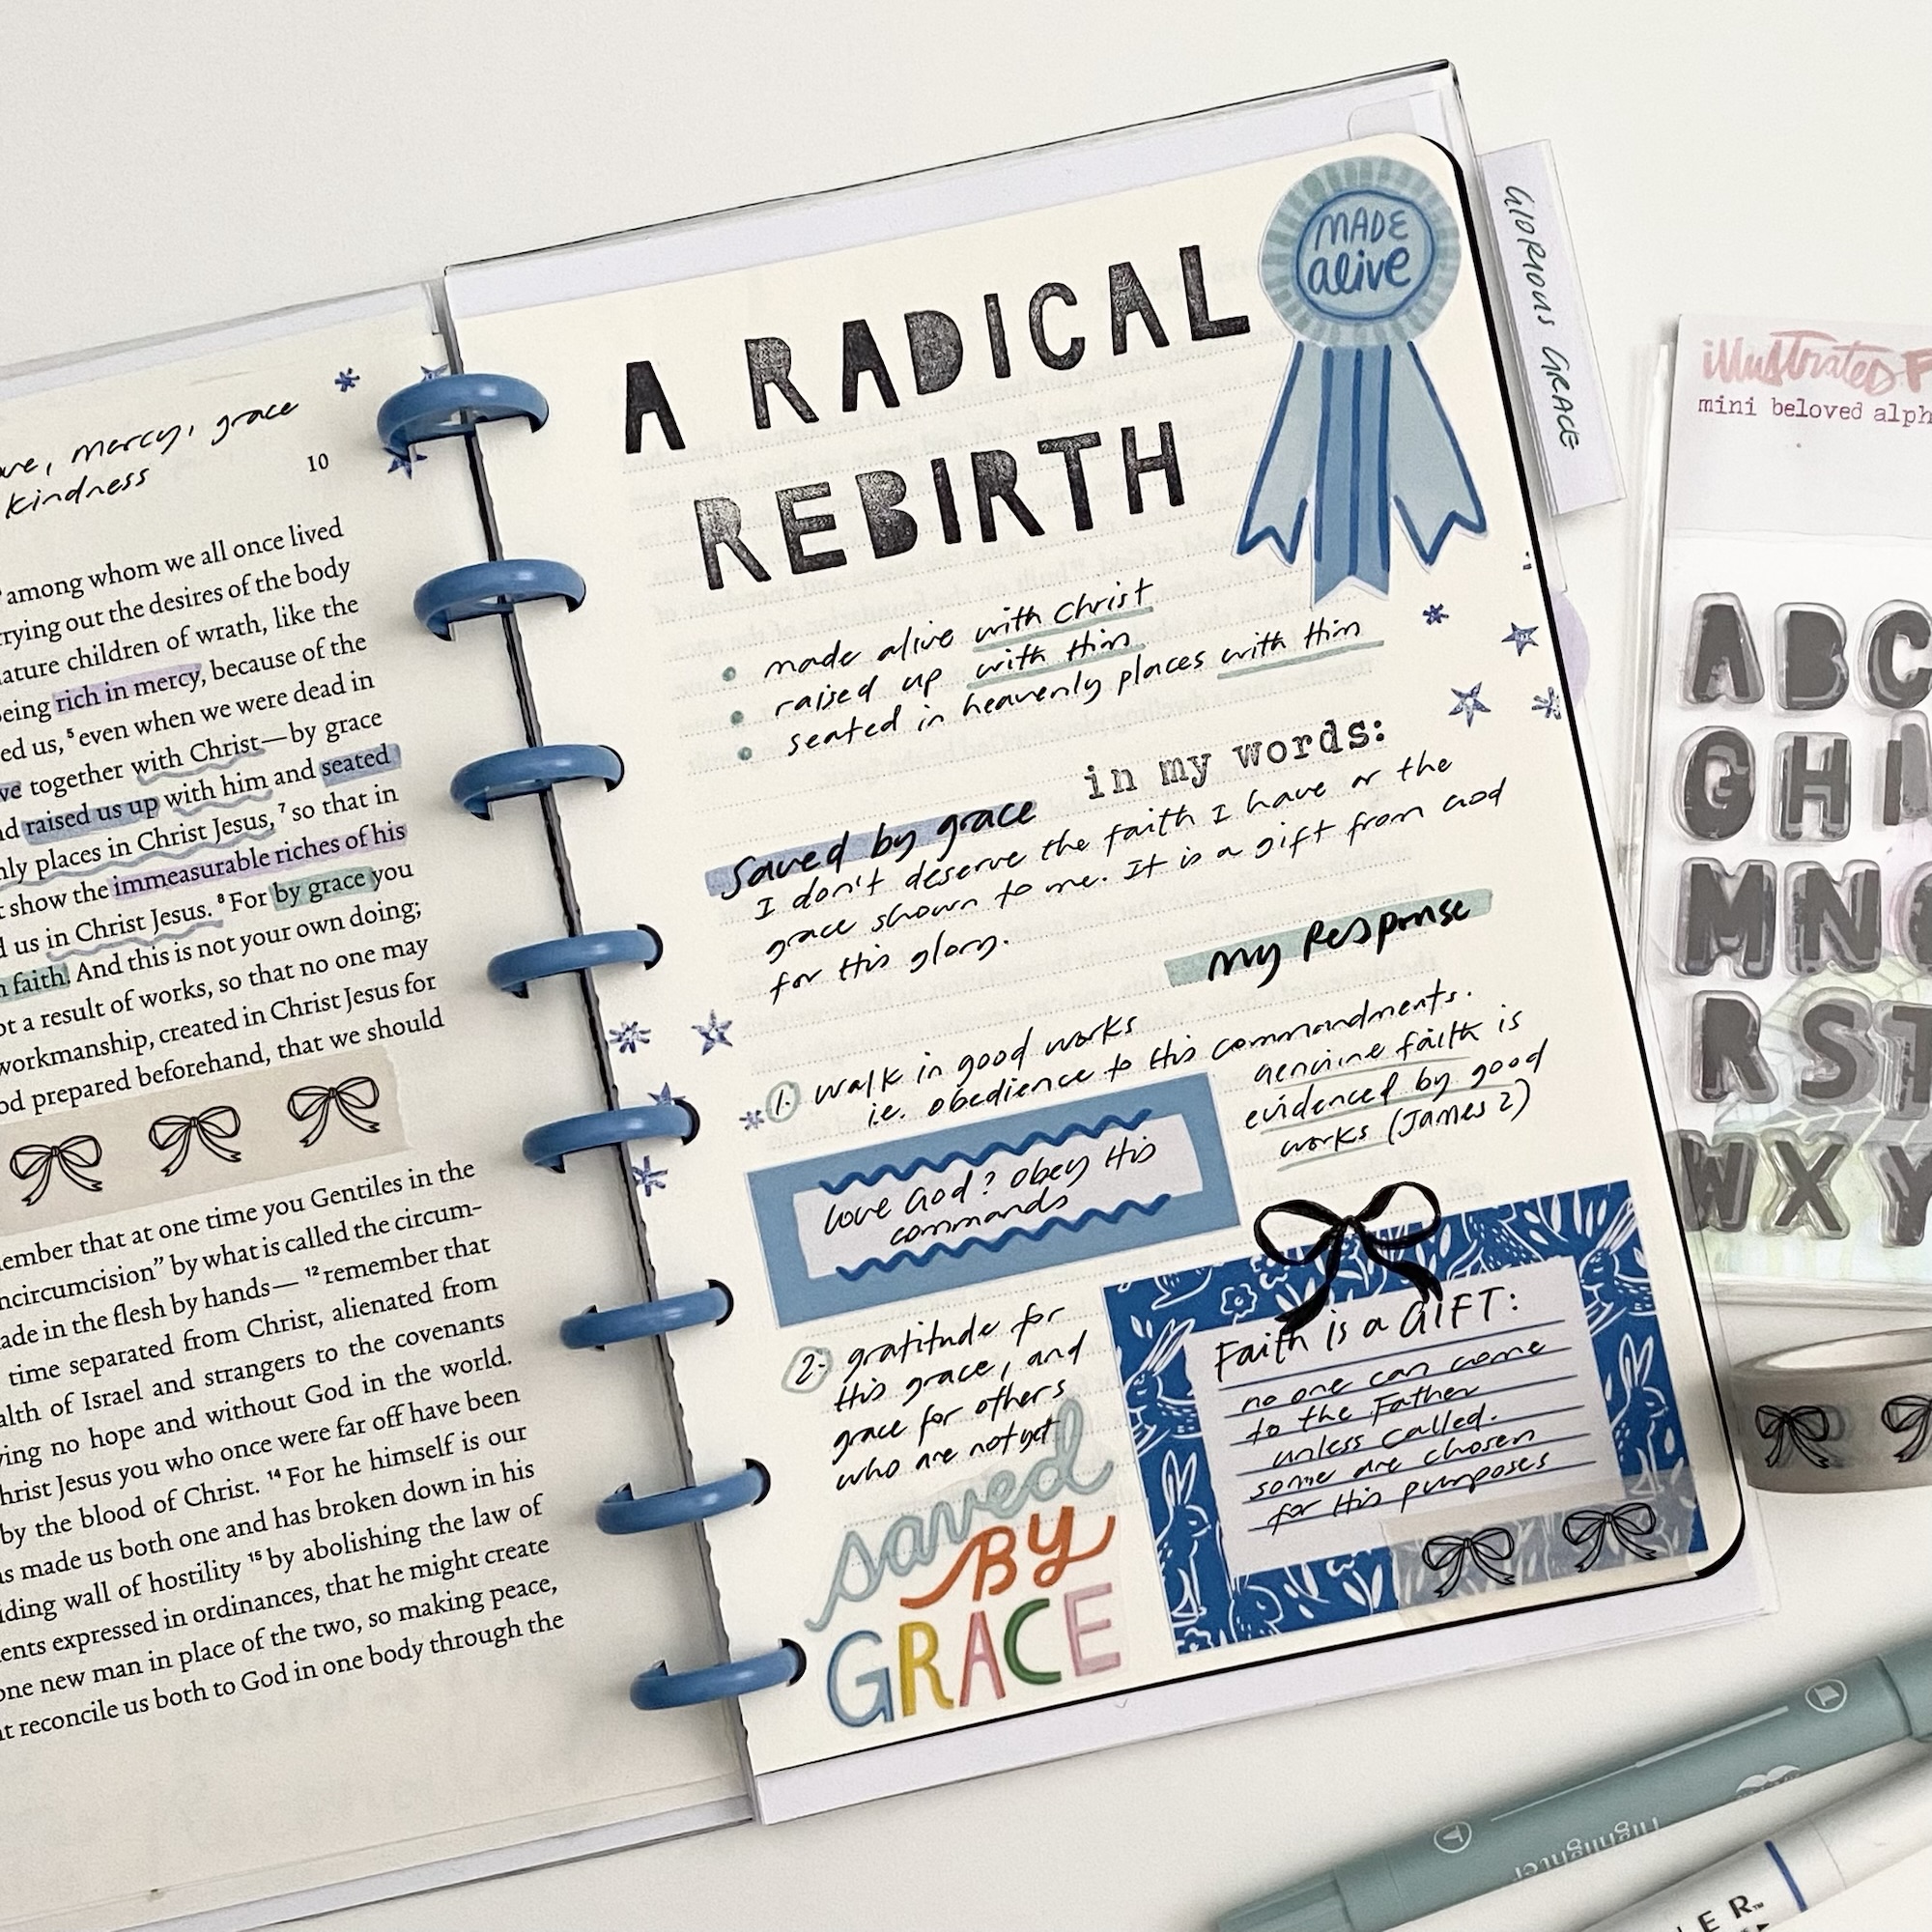 ve, mercy, grace
kindness
10
among whom we all once lived
rying out the desires of the body
ature children of wrath, like the
eing rich in mercy, because of the
ed us, ⁵ even when we were dead in
ve together with Christ—by grace
nd raised us up with him and seated
nly places in Christ Jesus, ⁷ so that in
t show the immeasurable riches of his
d us in Christ Jesus. ⁸ For by grace you
n faith. And this is not your own doing;
ot a result of works, so that no one may
workmanship, created in Christ Jesus for
od prepared beforehand, that we should
member that at one time you Gentiles in the
ncircumcision” by what is called the circum-
ade in the flesh by hands— ¹² remember that
time separated from Christ, alienated from
alth of Israel and strangers to the covenants
ving no hope and without God in the world.
hrist Jesus you who once were far off have been
by the blood of Christ. ¹⁴ For he himself is our
as made us both one and has broken down in his
iding wall of hostility ¹⁵ by abolishing the law of
ents expressed in ordinances, that he might create
one new man in place of the two, so making peace,
t reconcile us both to God in one body through the
A RADICAL
REBIRTH
MADE
alive
GlORIOUS GRACE
• made alive with Christ
• raised up with Him
• seated in heavenly places with Him
in my words:
Saved by grace
I don't deserve the faith I have or the
grace shown to me. It is a gift from God
for His glory.
my Response
1. walk in good works
i.e. obedience to His commandments.
genuine faith is
evidenced by good
works (James 2)
love God? Obey His
commands
2. gratitude for
His grace, and
grace for others
who are not yet
saved
BY
GRACE
Faith is a GIFT:
no one can come
to the Father
unless called.
some are chosen
for His purposes
illustratedF
mini beloved alph
ABC
GHI
MN
RST
WXY
Highlighter
ER™